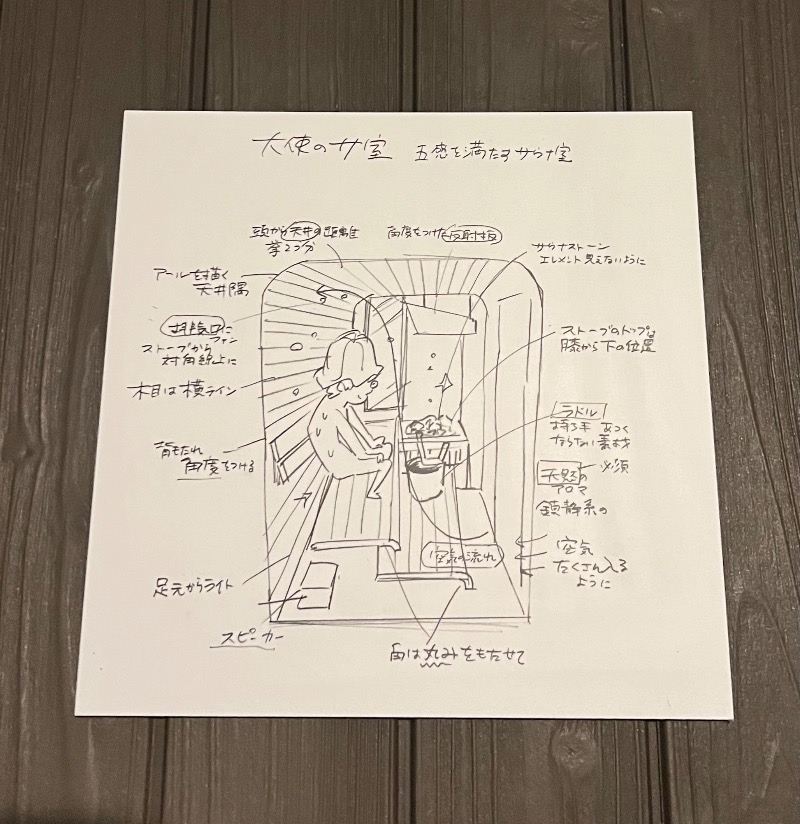 大使のサ室 五感を満たすサウナ室
頭から天井の距離
拳2つ分
角度をつけた反射板
サウナストーン
エレメント見えないように
アールを描く
天井隅
排気口に
ファン
ストーブから
対角線上に
ストーブのトップは
膝から下の位置
木目は横ライン
ラドル
持ち手 あつく
ならない素材
背もたれ
角度をつける
天然の
アロマ
必須
鎮静系の
空気の流れ
空気
たくさん入る
ように
足元からライト
スピーカー
角は丸みをもたせて